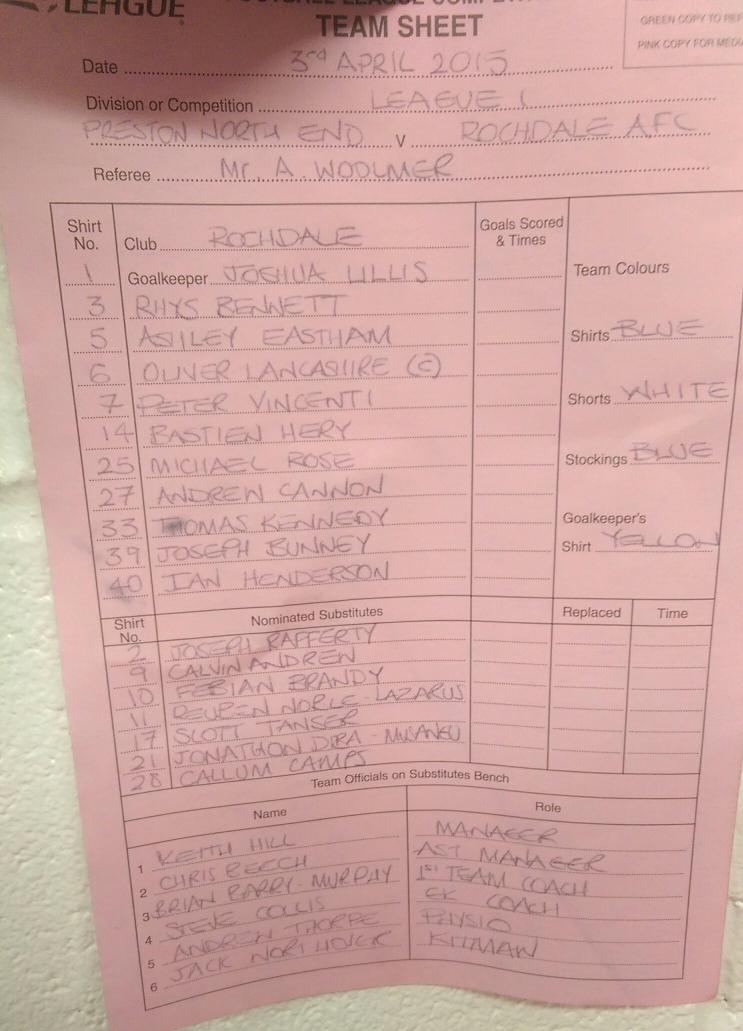 LEAGUE
TEAM SHEET
GREEN COPY TO
PINK COPY FOR
Date 3rd APRIL 2015
Division or Competition LEAGUE 1
PRESTON NORTH END V ROCHDALE AFC
Referee Mr. A. WOOLMER
Shirt No. Club ROCHDALE Goals Scored & Times
1 Goalkeeper JOSHUA LILLIS Team Colours
3 RHYS BENNETT
5 ASHLEY EASTHAM Shirts BLUE
6 OLIVER LANCASHIRE (C)
7 PETER VINCENTI Shorts WHITE
14 BASTIEN HERY
25 MICHAEL ROSE Stockings BLUE
27 ANDREW CANNON
33 THOMAS KENNEDY Goalkeeper's
39 JOSEPH BUNNEY Shirt YELLOW
40 IAN HENDERSON
Shirt No. Nominated Substitutes Replaced Time
2 JOSEPH RAFFERTY
9 CALVIN ANDREW
10 FEBIAN BRANDY
11 REUBEN NOBLE-LAZARUS
17 SCOTT TANSER
21 JONATHON DIBA-MUSANGU
28 CALLUM CAMPS
Team Officials on Substitutes Bench
Name Role
1 KEITH HILL MANAGER
2 CHRIS BEECH AST MANAGER
3 BRIAN BARRY-MURPHY 1st TEAM COACH
4 STEVE COLLIS GK COACH
5 ANDREW THORPE PHYSIO
6 JACK KITMAN